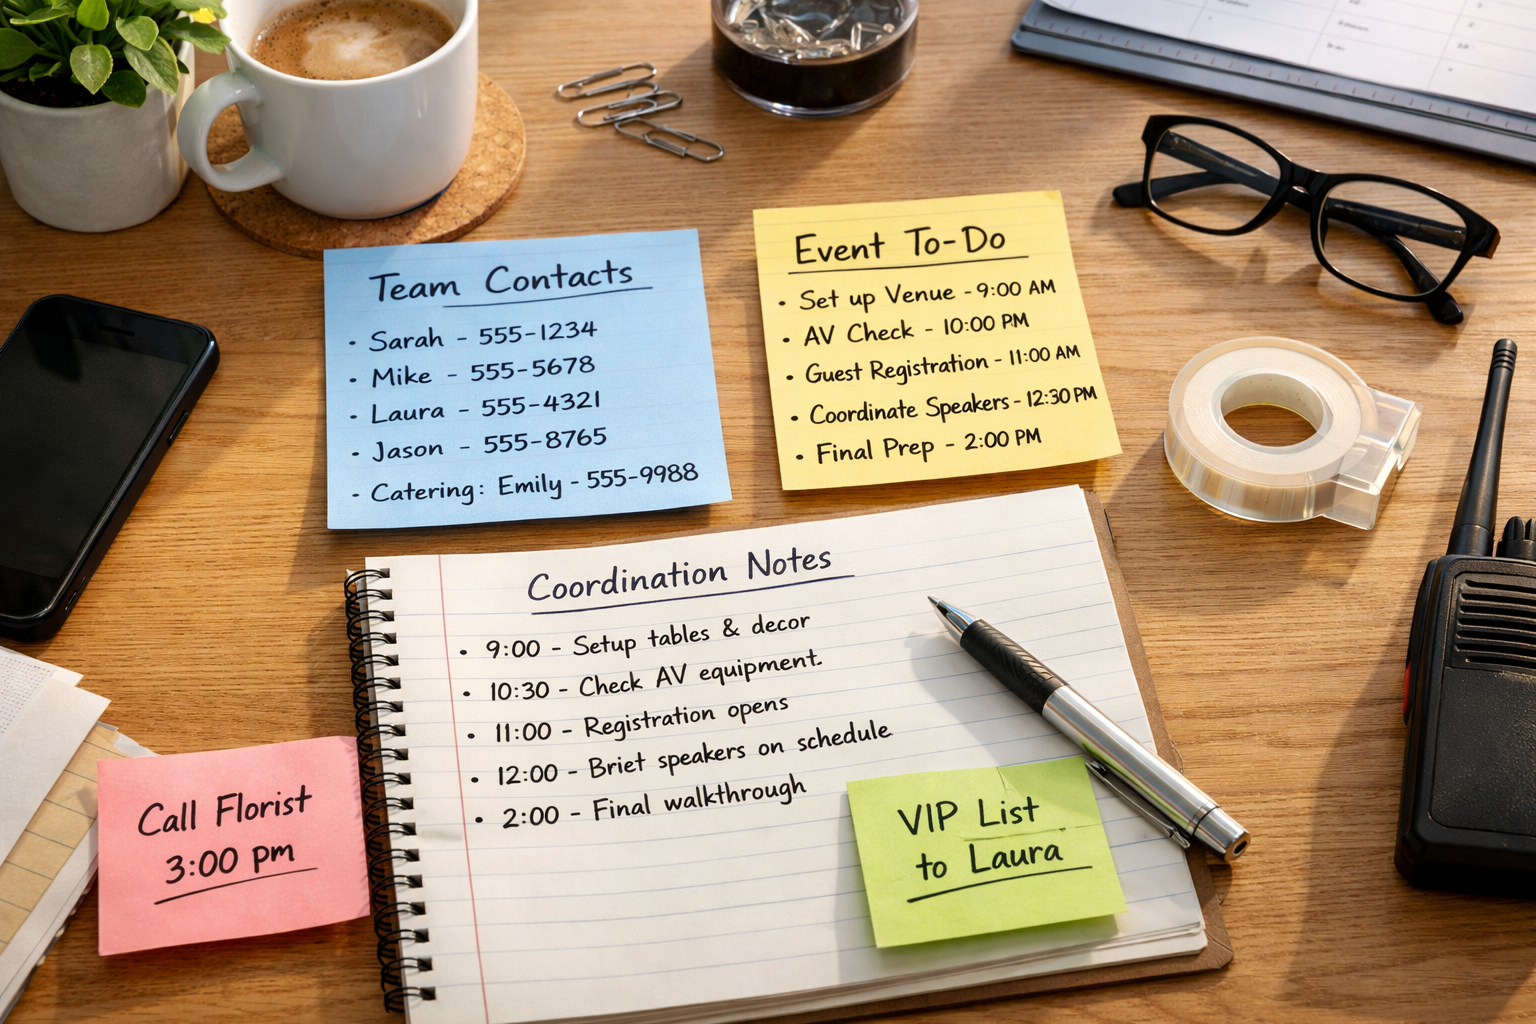 Team Contacts
• Sarah - 555-1234
• Mike - 555-5678
• Laura - 555-4321
• Jason - 555-8765
• Catering: Emily - 555-9988
Event To-Do
• Set up Venue - 9:00 AM
• AV Check - 10:00 PM
• Guest Registration - 11:00 AM
• Coordinate Speakers - 12:30 PM
• Final Prep - 2:00 PM
Coordination Notes
• 9:00 - Setup tables & decor
• 10:30 - Check AV equipment.
• 11:00 - Registration opens
• 12:00 - Briet speakers on schedule
• 2:00 - Final walkthrough
Call Florist
3:00 pm
VIP List
to Laura